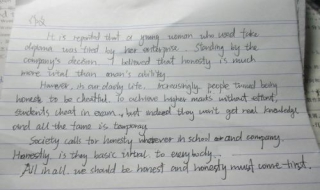 It is reported that a young woman who used fake
diploma was fired by her enterprise. Standing by the
company's decision, I believed that honesty is much
more vital than one's ability.
However, in our daily life, increasingly, people treat being
honest to be cheatful. To achieve higher marks without
students cheat in exam, but indeed they won't get real knowledge
and all the fame is temporary.
Society calls for honesty, wherever in school or and company.
Honestly is the basic virtual to everybody.
All in all, we should be honest and honesty must come first.